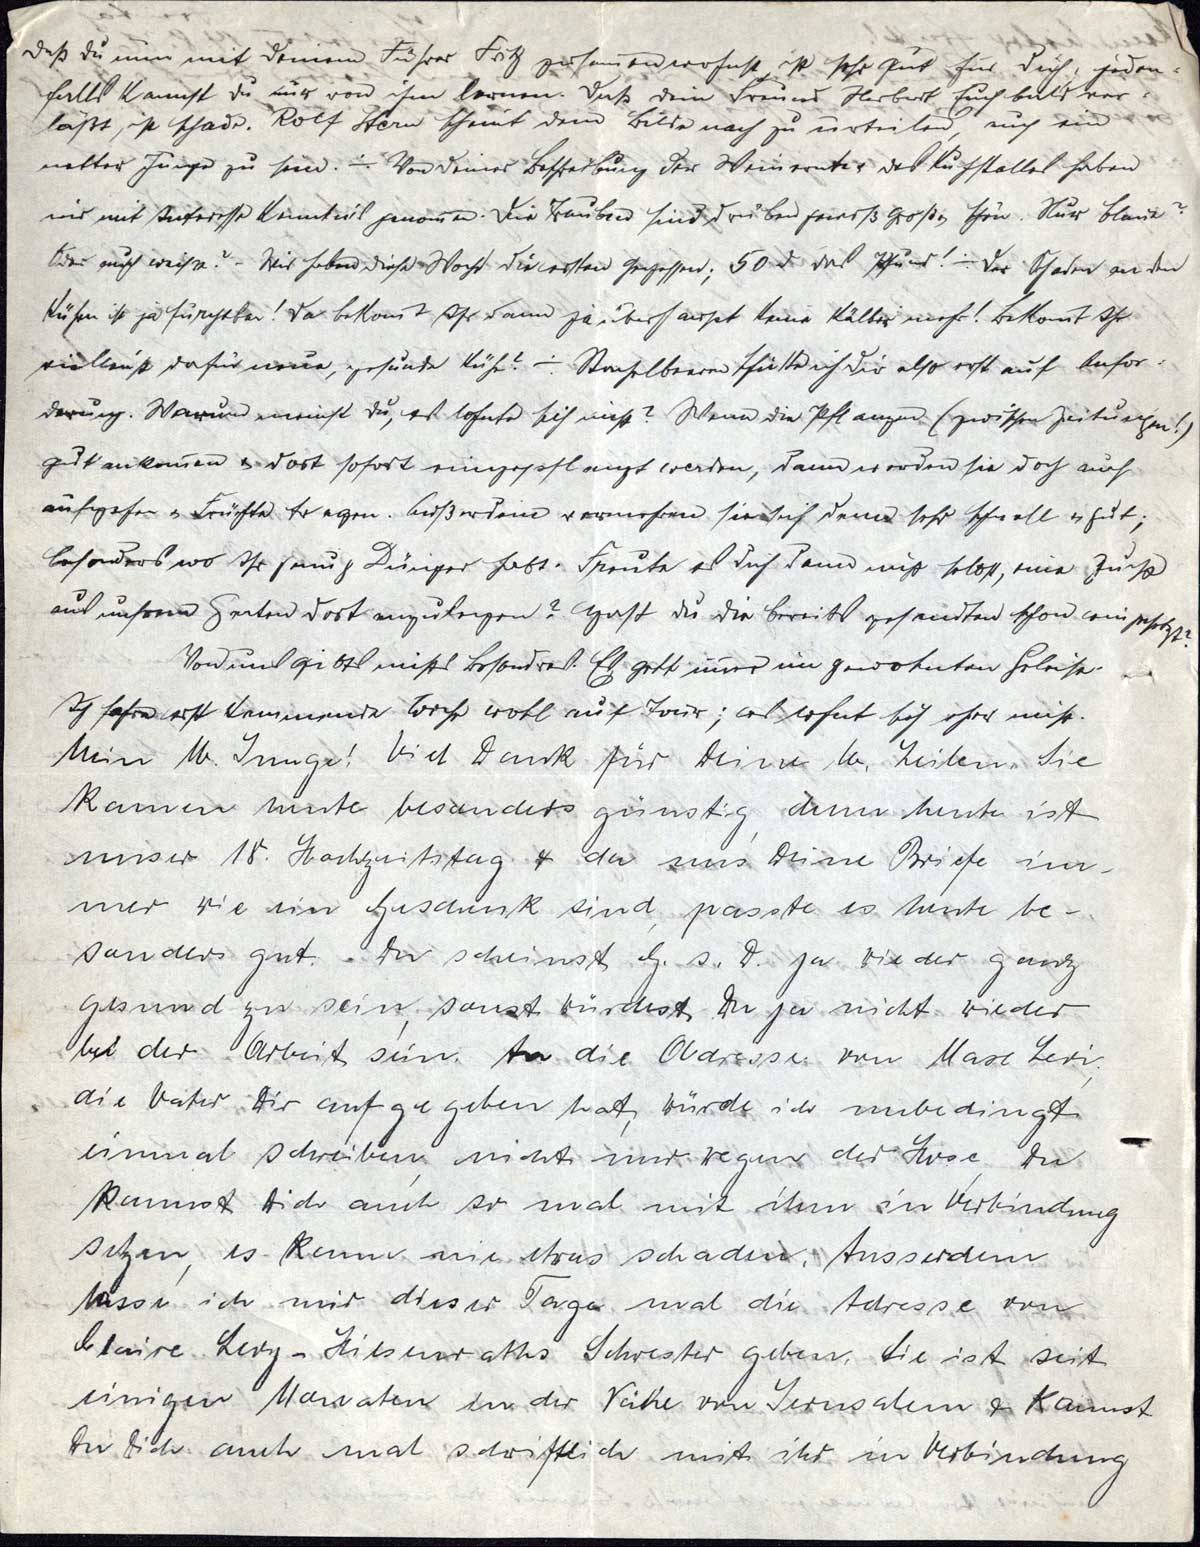 Daß Du nun mit Deinem Führer Fritz zusammen wohnst, ist sehr gut für Dich, jeden-
falls kannst Du nur von ihm lernen. Daß Dein Freund Herbert Euch bald ver-
läßt, ist schade. Rolf Stern scheint dem Bilde nach zu urteilen, auch ein
netter Junge zu sein. ÷ Von Deiner Beschreibung der Weinernte & des Kuhstalles haben
wir mit Interesse Kenntnis genommen. Die Trauben sind drüben gewiß groß & schön. Nur blaue?
Oder auch weiße? - Wir haben diese Woche die ersten gegessen; 50 d das Pfund! ÷ Der Schaden an den
Kühen ist ja furchtbar! Da bekommt Ihr dann ja überhaupt keine Kälber mehr! Bekommt Ihr
vielleicht dafür neue, gesunde Kühe? ÷ Stachelbeeren schicke ich Dir also erst auf Anfor-
derung. Warum meinst Du, es lohnte sich nicht? Wenn die Pflanzen (zwischen Zeitungen!)
gut ankommen & dort sofort eingepflanzt werden, dann werden sie doch auch
aufgehen & Früchte tragen. Außerdem vermehren sie sich dann sehr schnell & gut;
besonders wo Ihr genug Dünger habt. Freute es Dich dann nicht selbst, eine Zucht
aus unserem Garten dort anzulegen? Hast Du die bereits gesandten schon eingesetzt?
Von uns gibt's nichts Besonderes. Es geht immer im gewohnten Geleise.
Ich fahre erst kommende Woche wohl auf Tour; es lohnt sich eher nicht.
Mein lb. Junge! Viel Dank für Deine lb. Zeilen. Sie
kamen heute besonders günstig, denn heute ist
unser 18. Hochzeitstag & da uns Deine Briefe im-
mer wie ein Geschenk sind, passte es heute be-
sonders gut. - Du scheinst G. s. D. ja wieder ganz
gesund zu sein, sonst würdest Du ja nicht wieder
bei der Arbeit sein. An die Adresse von Max Levi,
die Vater Dir aufgegeben hat, würde ich unbedingt
einmal schreiben, nicht nur wegen der Hose. Du
kannst Dich auch so mal mit ihm in Verbindung
setzen, es kann nie etwas schaden. Ausserdem
lasse ich mir dieser Tage mal die Adresse von
Claire Levy - Hiesenraths Schwester geben. Sie ist seit
einigen Monaten in der Nähe von Jerusalem & kannst
Du Dich auch mal schriftlich mit ihr in Verbindung